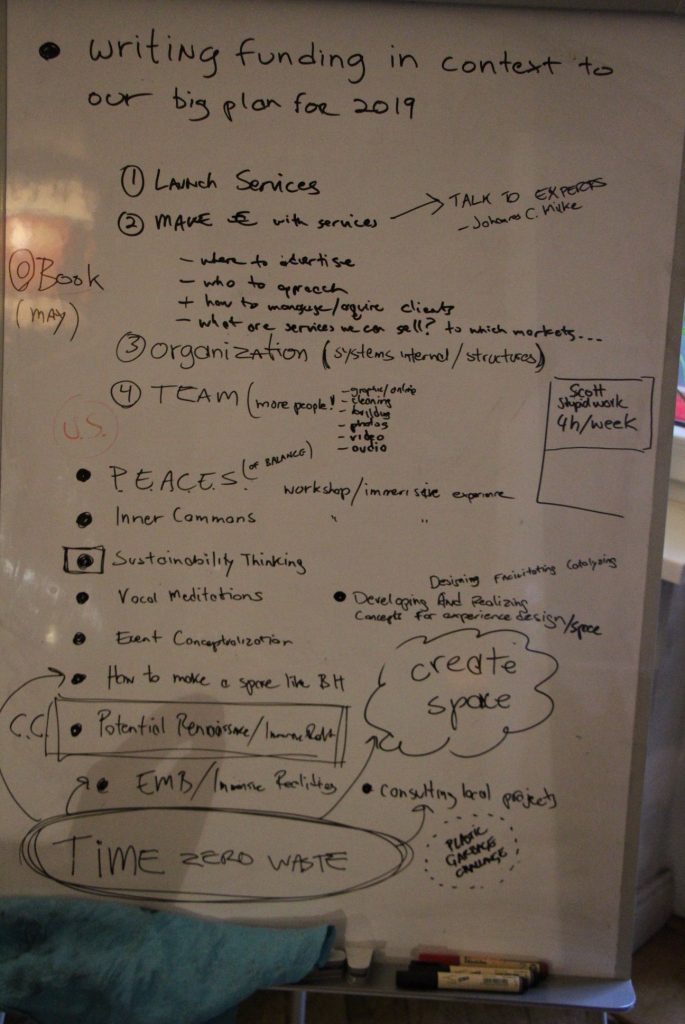 • Writing funding in context to
our big plan for 2019
① Launch Services
② MAKE € with services
TALK TO EXPERTS
- Johannes C.
- where to advertise
- who to approach
+ how to manguse/aquire clients
- what are services we can sell? to which markets...
⓪ Book
(MAY)
③ Organization (systems internal/structures)
④ TEAM (more people!
- graphic/online
- cleaning
- building
- photos
- video
- audio
U.S.
Scott
Stupid work
4h/week
• P.E.A.C.E.S. (OF BALANCE) workshop/immersive experience
• Inner Commons " "
• Sustainability Thinking
• Vocal Meditations
• Event Conceptualization
• How to make a space like BH
C.C. • Potential Renaissance/
• EMB/Immersive Realities
Designing Facilitating Catalyzing
• Developing And Realizing
Concepts for experience design/space
create
space
• Consulting local projects
TIME ZERO WASTE
PLASTIC
GARBAGE
CHALLENGE